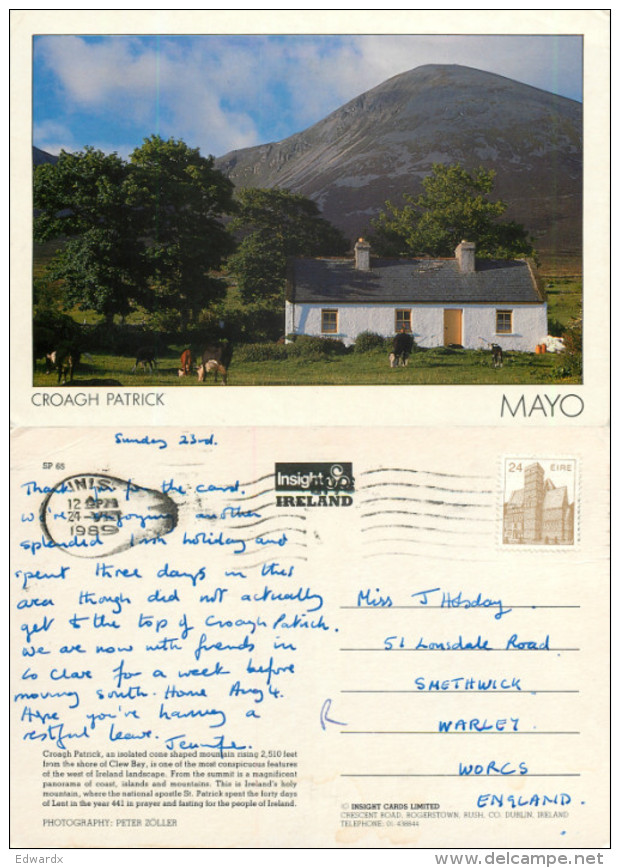 CROAGH PATRICK
MAYO
Sunday 23rd.
SP 65
Thank you for the card.
We're enjoying another
splendid Irish holiday and
spent three days in this
area though did not actually
get to the top of Croagh Patrick.
We are now with friends in
Co Clare for a week before
moving south. Home Aug 4.
Hope you're having a
restful leave. Jennifer.
INIS
12
24
1989
Insight
IRELAND
24 EIRE
Miss J Holsday
51 Lonsdale Road
SMETHWICK
WARLEY.
WORCS
ENGLAND.
R
Croagh Patrick, an isolated cone shaped mountain rising 2,510 feet
from the shore of Clew Bay, is one of the most conspicuous features
of the west of Ireland landscape. From the summit is a magnificent
panorama of coast, islands and mountains. This is Ireland's holy
mountain, where the national apostle St. Patrick spent the forty days
of Lent in the year 441 in prayer and fasting for the people of Ireland.
PHOTOGRAPHY: PETER ZÖLLER
© INSIGHT CARDS LIMITED
CRESCENT ROAD, ROGERSTOWN, RUSH, CO. DUBLIN, IRELAND
TELEPHONE: 01-438844
Edwardx
delcampe.net